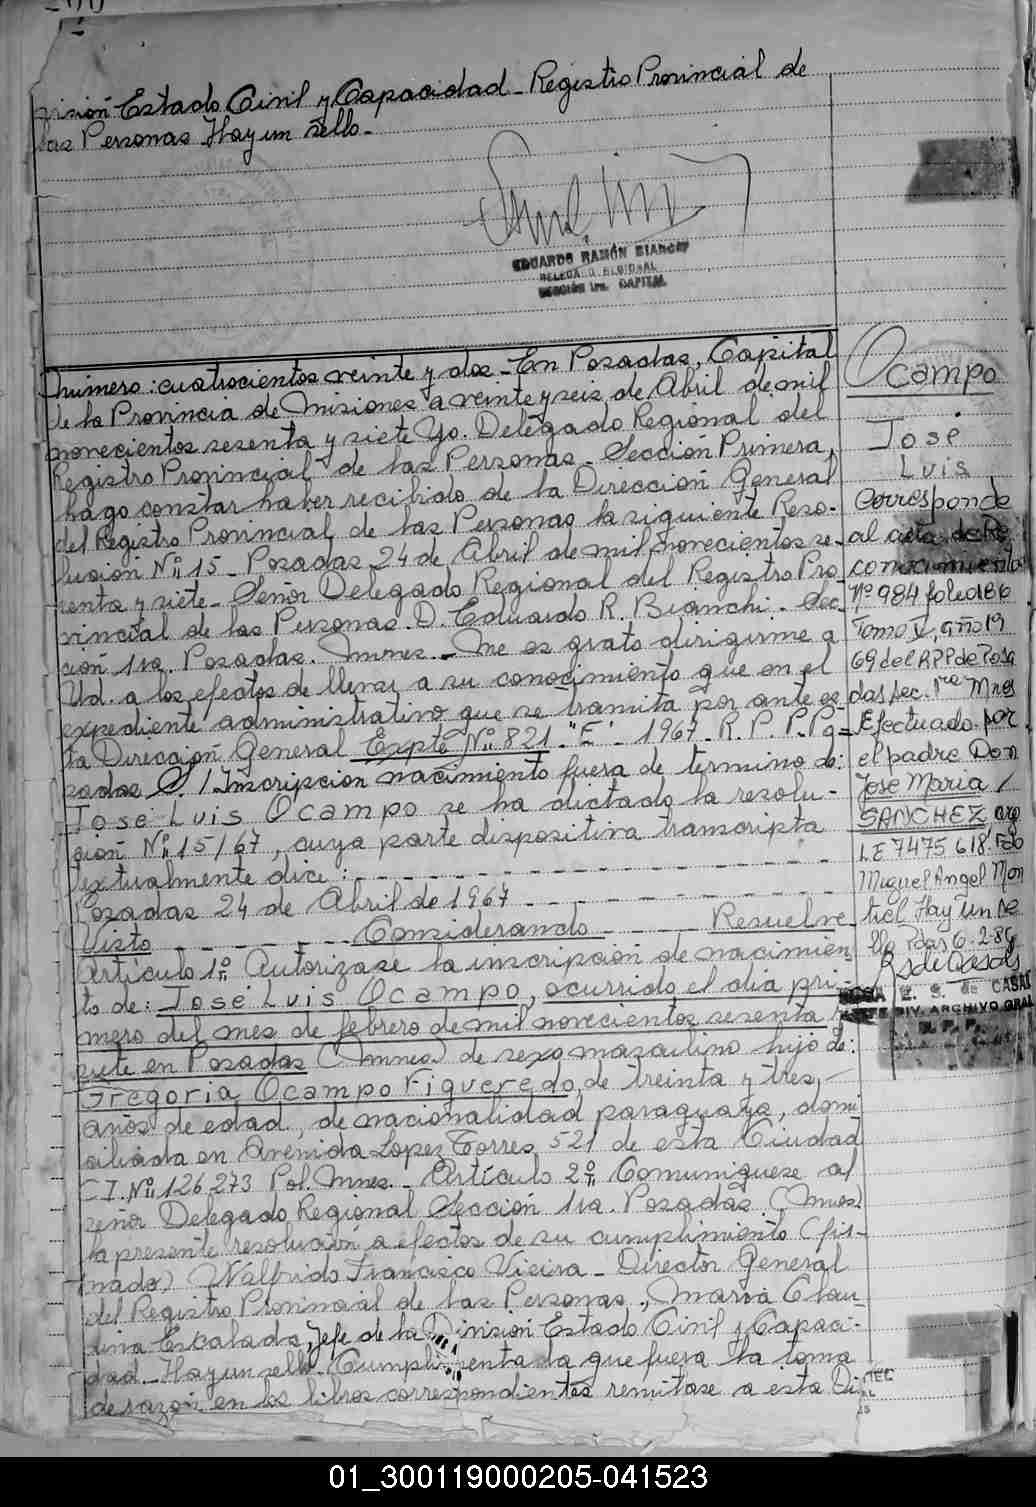 visión Estado Civil y Capacidad - Registro Provincial de
las Personas Hay un sello -
EDUARDO RAMÓN BIANCHI
DELEGADO REGIONAL
SECCIÓN 1ra. CAPITAL
Número: cuatrocientos veinte y dos - En Posadas, Capital
de la Provincia de Misiones a veinte y seis de Abril de mil
novecientos sesenta y siete Yo. Delegado Regional del
Registro Provincial de las Personas - Sección Primera,
hago constar haber recibido de la Dirección General
del Registro Provincial de las Personas la siguiente Reso-
lución Nº 15 - Posadas 24 de Abril de mil novecientos se-
senta y siete - Señor Delegado Regional del Registro Pro
vincial de las Personas. D. Eduardo R. Bianchi - Sec-
ción 1ra. Posadas. Mnes. - Me es grato dirigirme a
Ud. a los efectos de llevar a su conocimiento que en el
expediente administrativo que se tramita por ante es
ta Dirección General Expte Nº 821 - "E" - 1967 - R. P. P. Po=
sadas C. / Inscripcion nacimiento fuera de termino de:
Jose Luis Ocampo se ha dictado la resolu-
ción Nº 15/67, cuya parte dispositiva transcripta
textualmente dice: - - - - - - - - - - - - - - - -
Posadas 24 de Abril de 1967 - - - - - - - - - -
Visto - - - - - - - Considerando - - - - - Resuelve
Artículo 1º Autorizase la inscripción de nacimien
to de: José Luis Ocampo, ocurrido el día pri-
mero del mes de febrero de mil novecientos sesenta y
siete en Posadas (Mnes) de sexo masculino hijo de:
Gregoria Ocampo Figueredo, de treinta y tres
años de edad, de nacionalidad paraguaya, domi
ciliada en Avenida Lopez Torres 521 de esta Ciudad
C.I. Nº 126 273 Pol. Mnes - Artículo 2º Comuniquese al
señor Delegado Regional Sección 1ra. Posadas. (Mnes)
la presente resolución a efectos de su cumplimiento (fir-
mado) Walfrido Francisco Vieira - Director General
del Registro Provincial de las Personas, María Clau-
dina Escalada, Jefe de la División Estado Civil y Capaci-
dad - Hay un sello. Cumplimentada que fuera la toma
de razón en los libros correspondientes remitase a esta Di
Ocampo
Jose
Luis
Corresponde
al acta de Re
conocimiento
Nº 984 folio 186
Tomo V, año 19
69 del RPP de Posa
das Sec. 1ra Mnes
Efectuado por
el padre Don
Jose Maria
SANCHEZ, arg
LE 7475 618. Fdo
Miguel Angel Mon
tiel Hay un Se
llo Pdas 6-2-86
ROSA E. S. de CASAL
JEFE DIV. ARCHIVO GRAL
R. P. P.
01_300119000205-041523